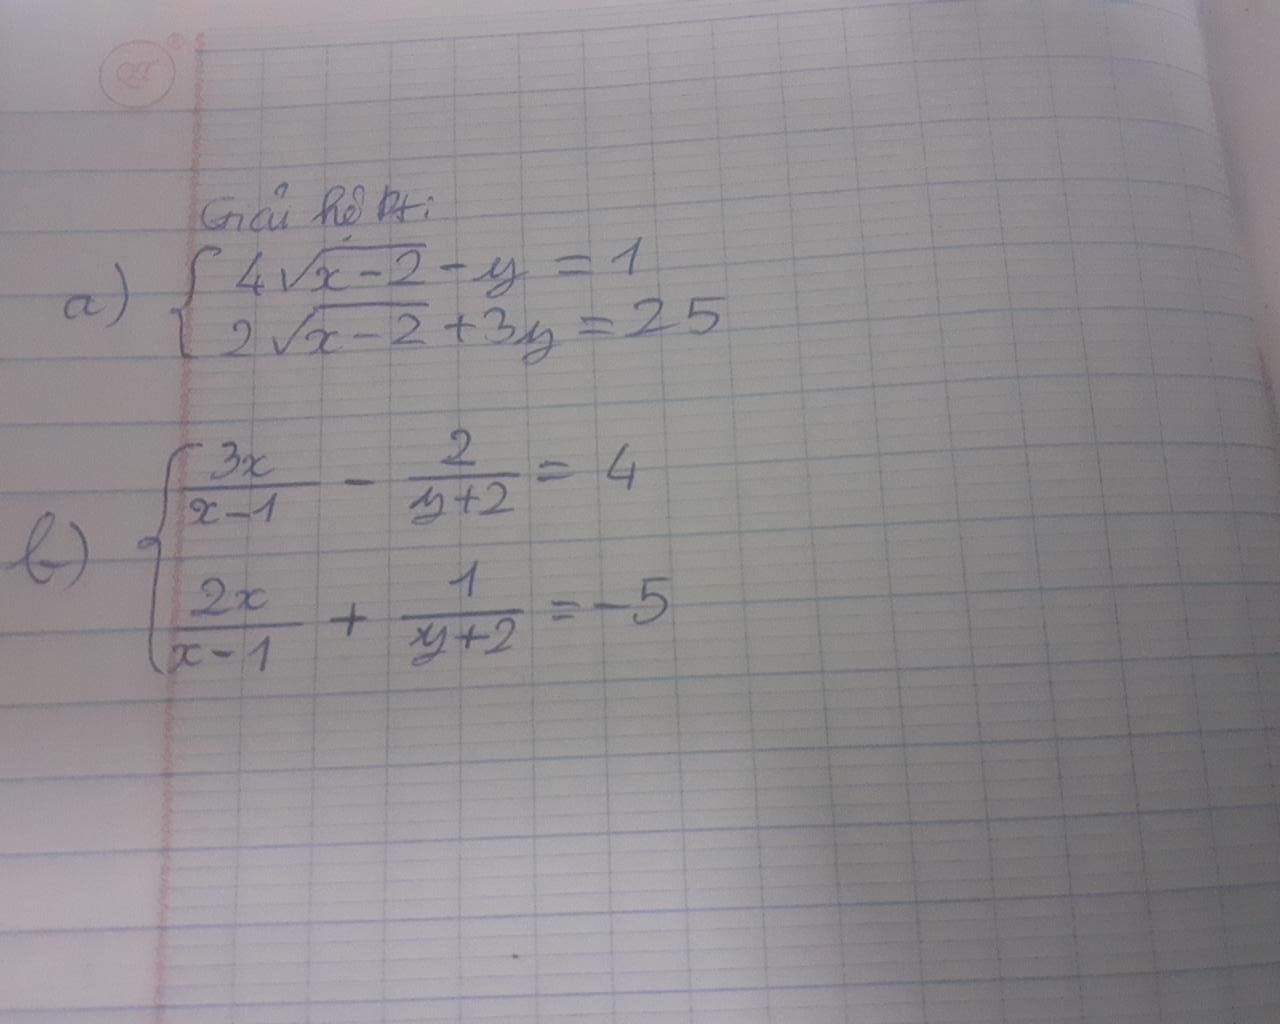 Giải hệ Pt:
a) { 4√(x-2) - y = 1
2√(x-2) + 3y = 25
b) { 3x/(x-1) - 2/(y+2) = 4
2x/(x-1) + 1/(y+2) = -5